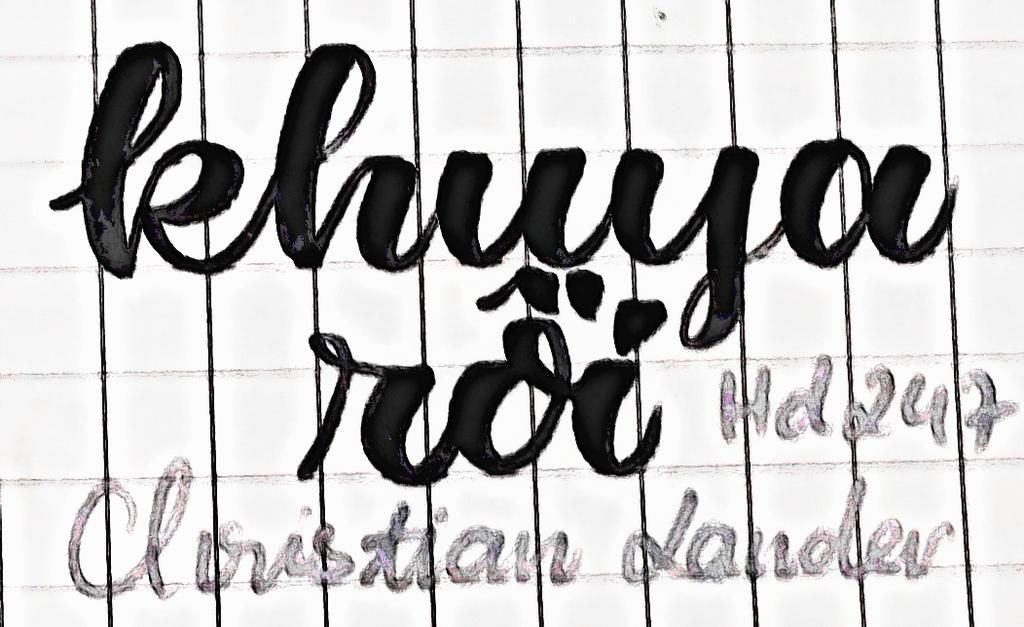 khuya
rồi
Hd 247
Christian Lander